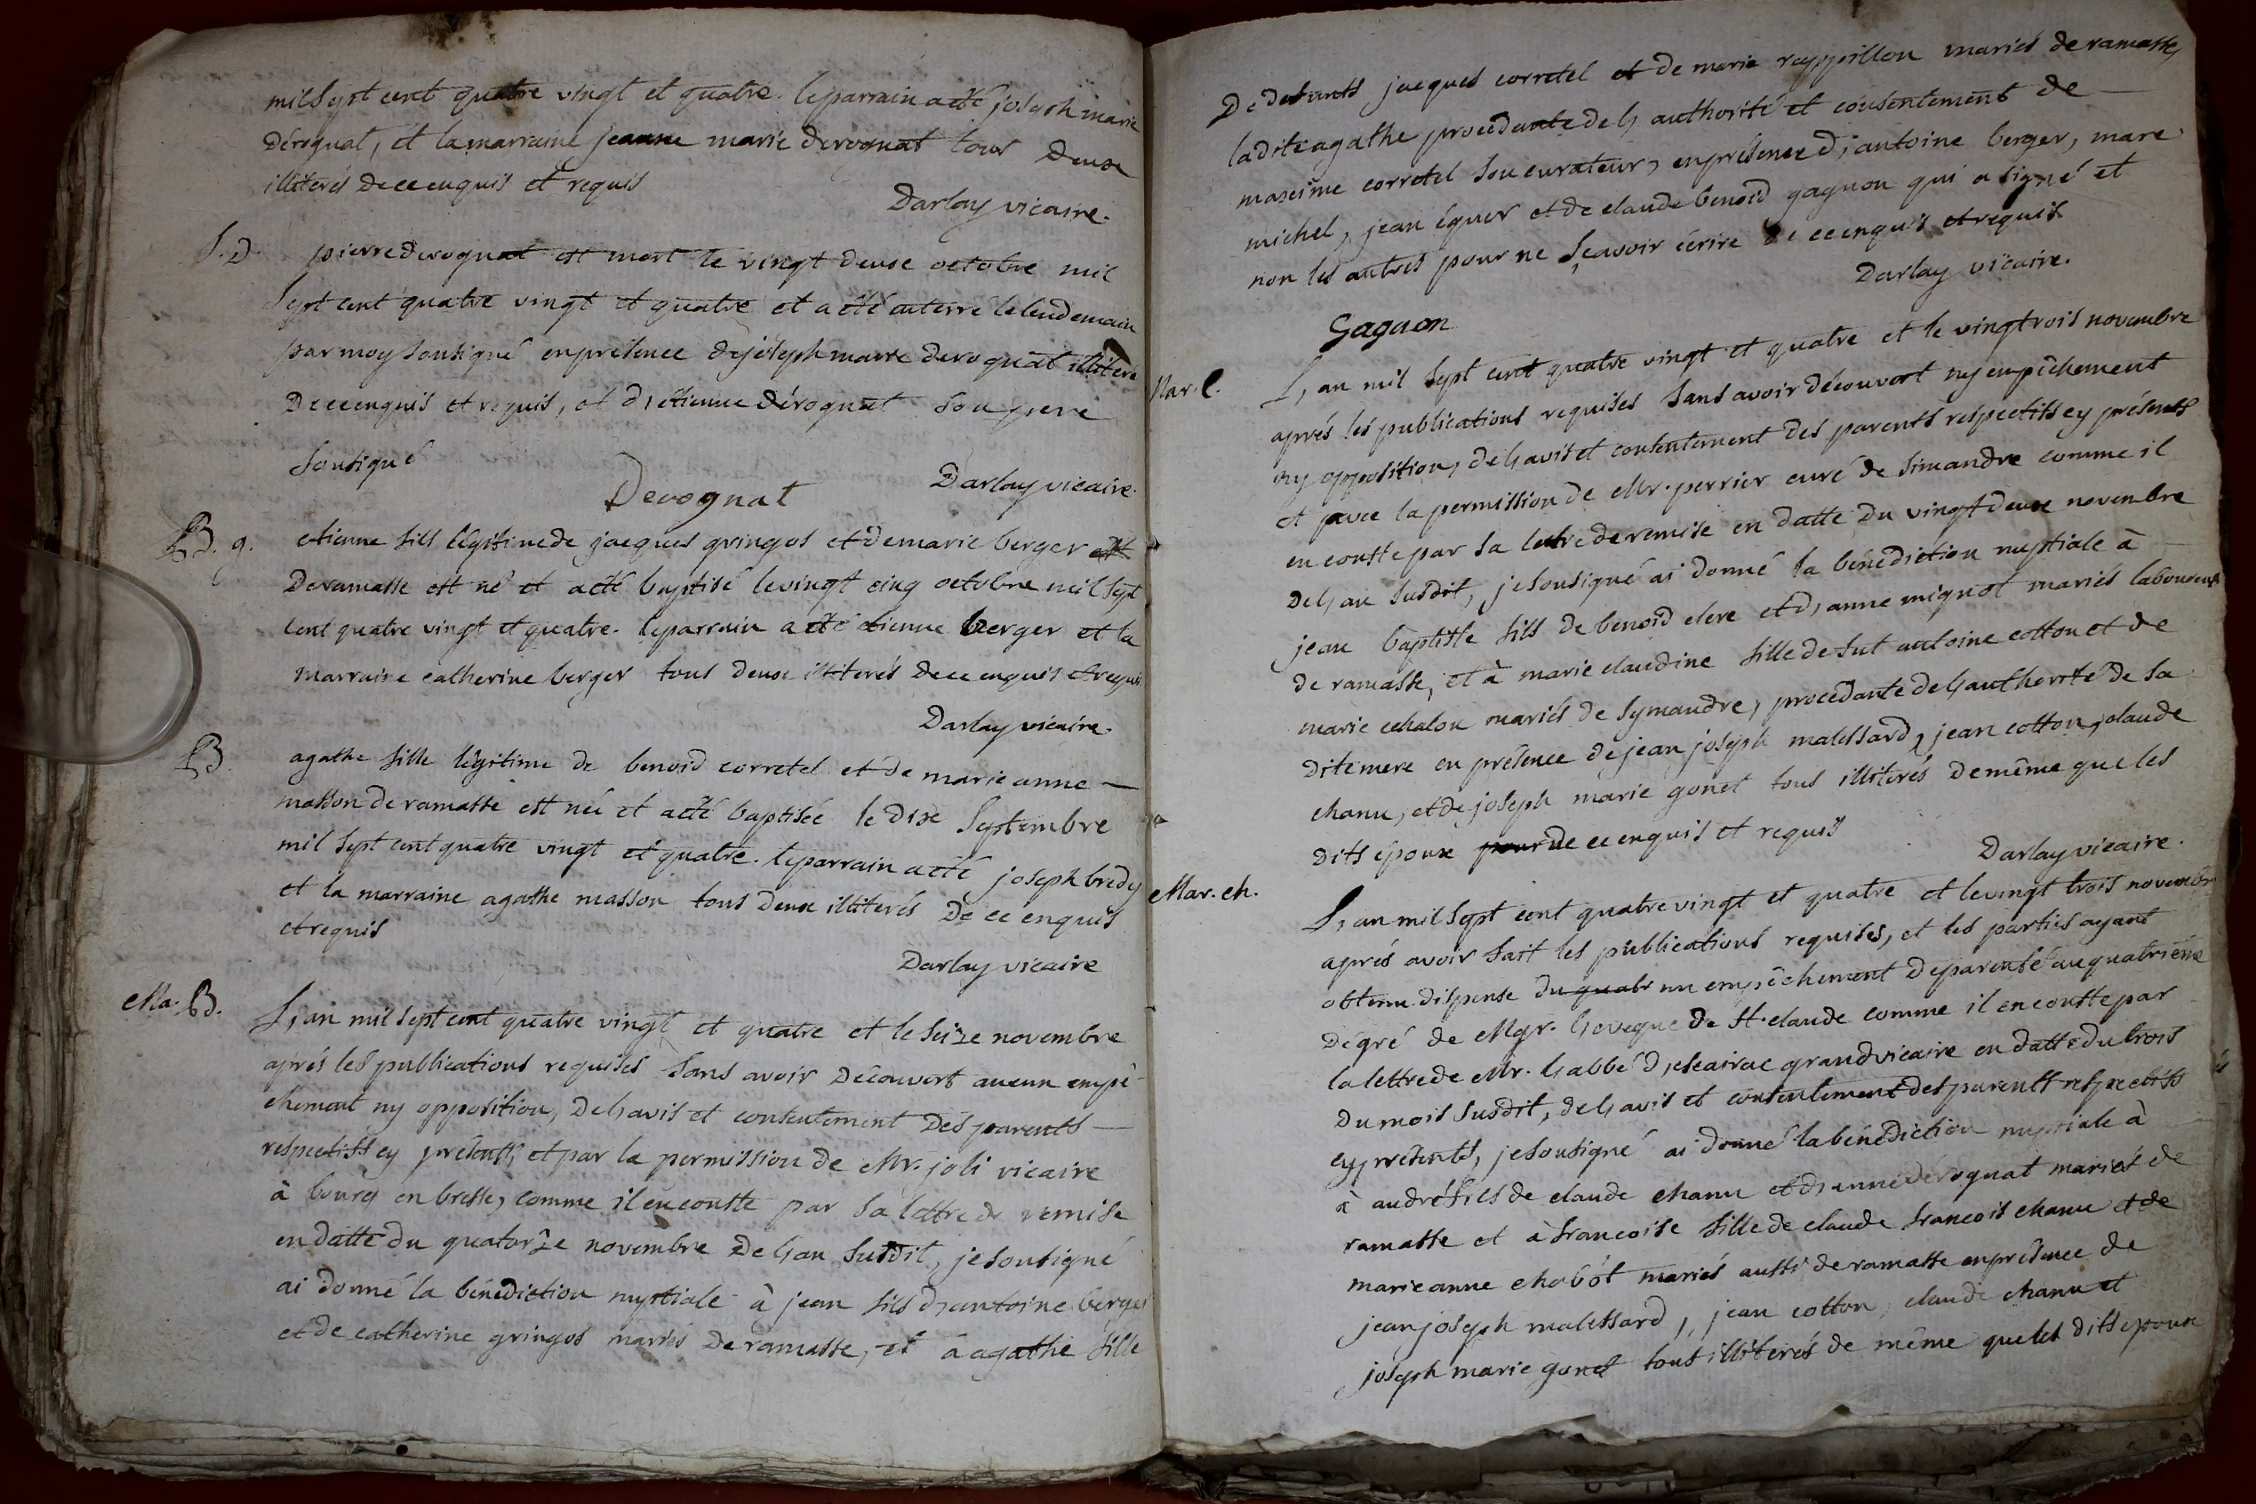 mil sept cent quatre vingt et quatre. le parrain a été joseph marie
dérognat, et la marraine jeanne marie derognat tous deux
illiterés de ce enquis et requis
Darlay vicaire.
S. D. pierre derognat est mort le vingt deux octobre mil
sept cent quatre vingt et quatre et a été enterré le lendemain
par moy soussigné en présence de joseph marie derognat illiteré
de ce enquis et requis, et d'etienne dérognat son frere
soussigné
Derognat Darlay vicaire.
B. g. etienne fils légitime de jacques gringos et de marie berger
de ramasse est né et a été baptisé le vingt cinq octobre mil sept
cent quatre vingt et quatre. le parrain a été etienne berger et la
marraine catherine berger tous deux illiterés de ce enquis et requis
Darlay vicaire.
B. agathe fille légitime de benoid corretel et de marie anne —
masson de ramasse est née et a été baptisée le dix septembre
mil sept cent quatre vingt et quatre. le parrain a été joseph bredy
et la marraine agathe masson tous deux illiterés de ce enquis
et requis
Darlay vicaire
Ma. B. L'an mil sept cent quatre vingt et quatre et le seize novembre
aprés les publications requises sans avoir découvert aucun empê-
chement ny opposition, de l'avis et consentement des parents —
respectifs cy présents, et par la permission de Mr. joli vicaire
à bourg en bresse, comme il en conste par sa lettre de remise
en datte du quatorze novembre de l'an susdit, je soussigné
ai donné la bénédiction nuptiale à jean fils d'antoine berger
et de catherine gringos mariés de ramasse, et à agathe fille
De defunts jacques corretel et de marie mariés de ramasse,
la dite agathe procédante de l'authorité et consentement de —
maxime corretel son curateur, en présence d'antoine berger, marc
michel, jean équer et de claude benoid gagnon qui a signé et
non les autres pour ne sçavoir écrire de ce enquis et requis
Darlay vicaire.
Gagnon
Mar. C. L'an mil sept cent quatre vingt et quatre et le vingtrois novembre
aprés les publications requises sans avoir découvert ny empêchement
ny opposition, de l'avis et consentement des parents respectifs cy présents
et avec la permission de Mr. perrier curé de simandre comme il
en conste par sa lettre de remise en datte du vingt deux novembre
de l'an susdit, je soussigné ai donné la bénédiction nuptiale à —
jean baptiste fils de benoid clere et d'anne mignot mariés laboureurs
de ramasse, et à marie claudine fille de fut antoine cotton et de
marie echalon mariés de symandre, procédante de l'authorité de sa
dite mere en présence de jean joseph malessard, jean cotton, claude
chanu, et de joseph marie gonet tous illiterés de même que les
dits époux pour de ce enquis et requis
Darlay vicaire.
Mar. ch. L'an mil sept cent quatre vingt et quatre et le vingt trois novembre
aprés avoir fait les publications requises, et les parties ayant
obtenu dispense du quatr un empêchement de parenté au quatriéme
dégré de Mgr. l'eveque de St. claude comme il en conste par
la lettre de Mr. l'abbé d'escairac grand vicaire en datte du trois
du mois susdit, de l'avis et consentement des parents respectifs
cy présents, je soussigné ai donné la bénédiction nuptiale à —
à andré fils de claude chanu et d'anne dérognat mariés de
ramasse et à francoise fille de claude francois chanu et de
marie anne chabôt mariés aussi de ramasse en présence de
jean joseph malessard, jean cotton, claude chanu et
joseph marie gonet tous illiterés de même que les dits epoux